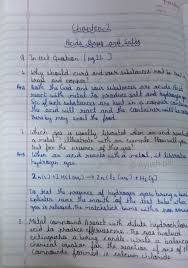 Chapter-2
Acids, Bases and Salts
Q. In text Question (pg 22)
1. Why should curd and sour substances not be
Ans Both the Curd and sour substances are acidic. They
react with metal to produce salt and hydrogen gas
If such substances are kept in a copper container
the acid will react and the container will be
thereby may spoil the food.
2. Which gas is usually liberated when an acid reacts
a metal? Illustrate with an example. How will you
test for the presence of the gas?
Ans When an acid reacts with a metal, it liberates
hydrogen gas.
To test the presence of hydrogen gas, bring a burning
splinter near the mouth of the test tube when
gas is released. The matchstick burns with a
3. Metal compound A reacts with dilute hydrochloric
acid to produce effervescence. The gas evolved
extinguishes a burning candle. Write a balanced
chemical equation for the reaction if one of the
compounds formed is calcium chloride.